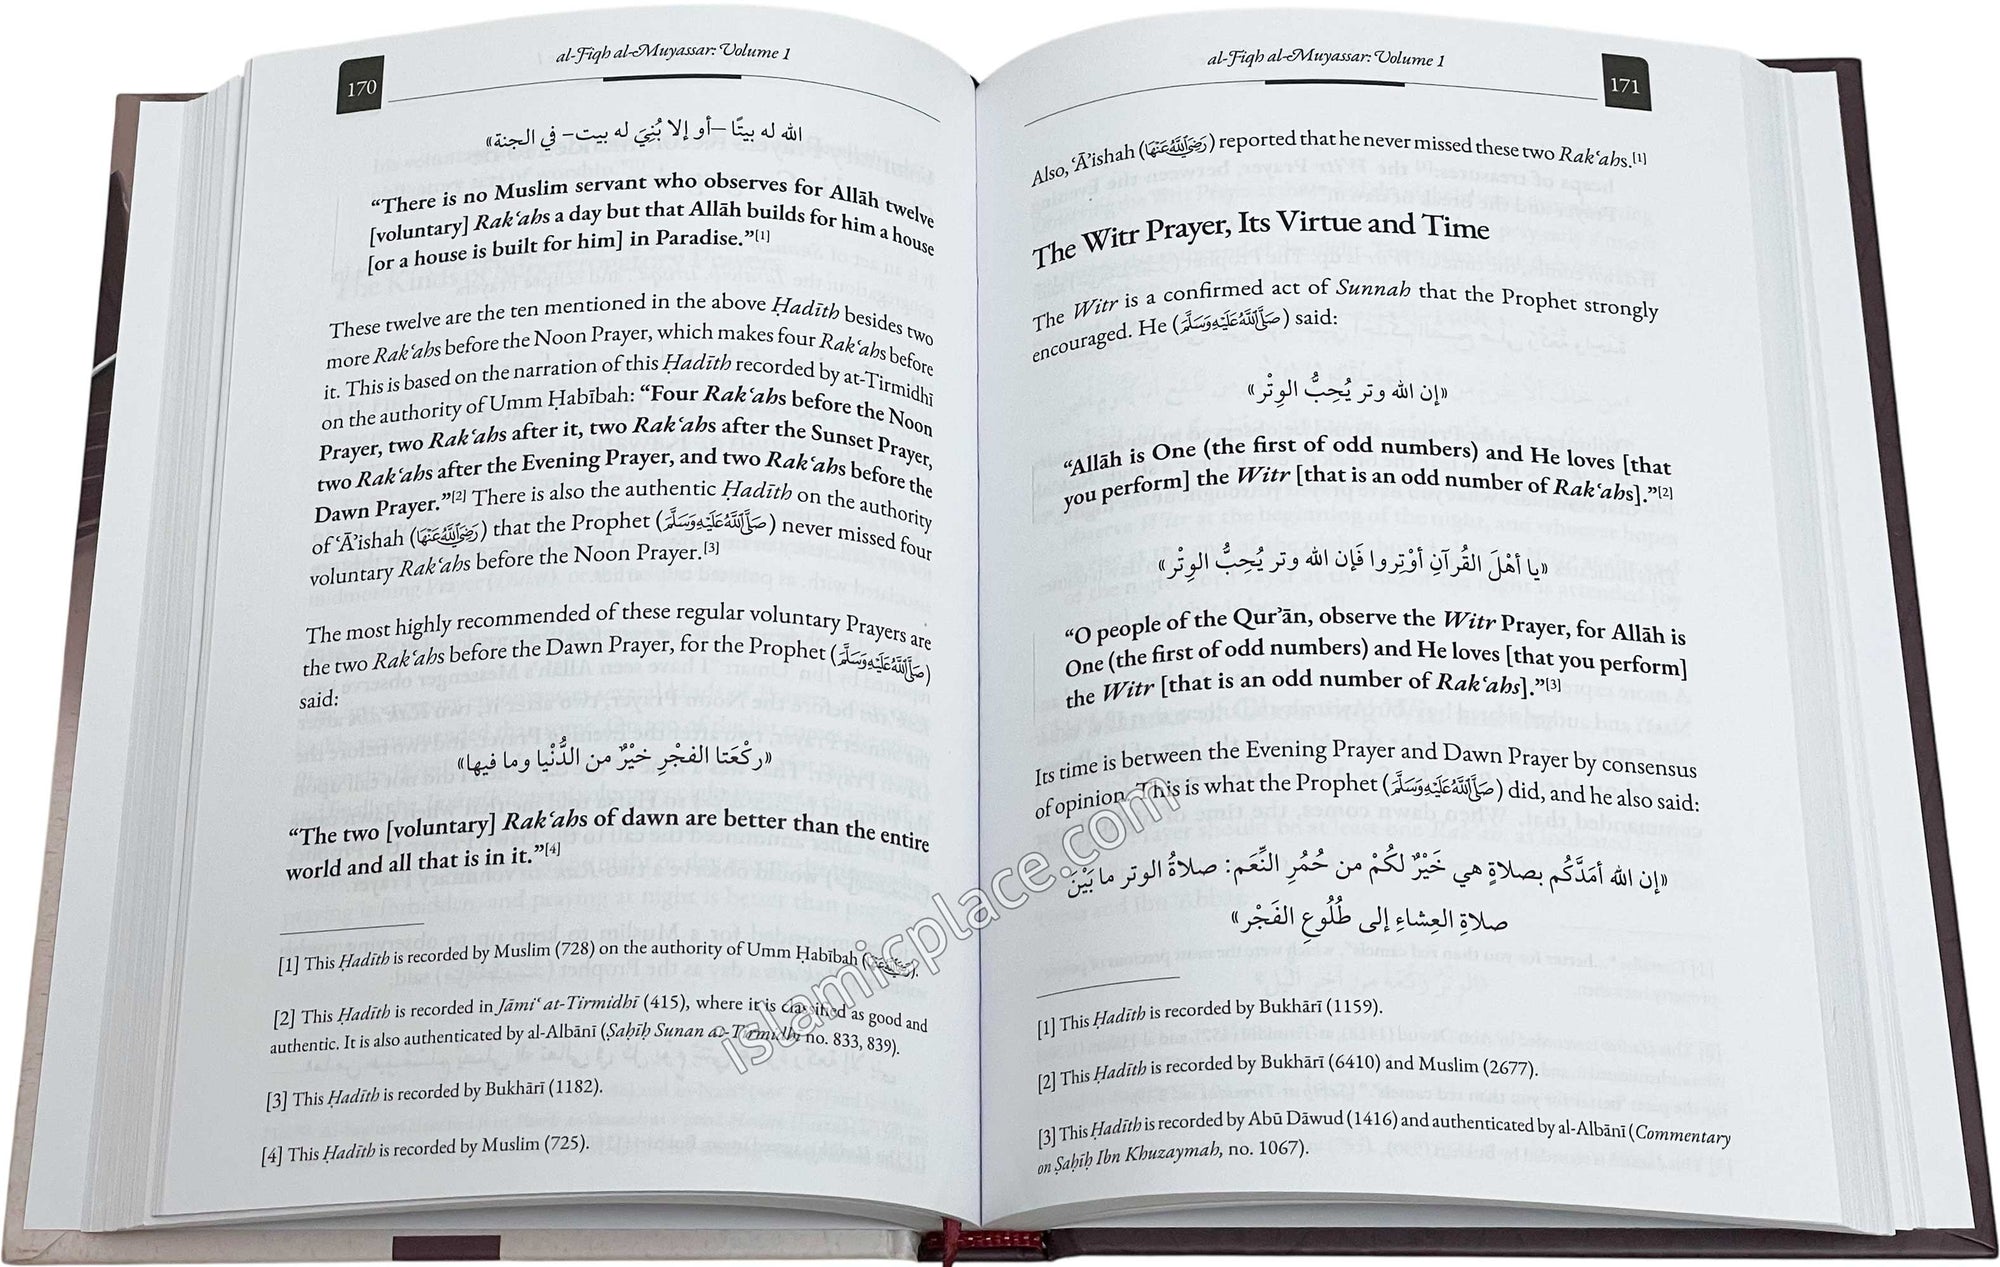 170
al-Fiqh al-Muyassar: Volume 1
الله له بيتًا –أو إلا بُنِيَ له بيت– في الجنة»
“There is no Muslim servant who observes for Allāh twelve
[voluntary] Rakʿahs a day but that Allāh builds for him a house
[or a house is built for him] in Paradise.”[1]
These twelve are the ten mentioned in the above Ḥadīth besides two
more Rakʿahs before the Noon Prayer, which makes four Rakʿahs before
it. This is based on the narration of this Ḥadīth recorded by at-Tirmidhī
on the authority of Umm Ḥabībah: “Four Rakʿahs before the Noon
Prayer, two Rakʿahs after it, two Rakʿahs after the Sunset Prayer,
two Rakʿahs after the Evening Prayer, and two Rakʿahs before the
Dawn Prayer.”[2] There is also the authentic Ḥadīth on the authority
of ʿĀʾishah (رَضِيَ اللَّهُ عَنْهَا) that the Prophet (صَلَّى اللَّهُ عَلَيْهِ وَسَلَّمَ) never missed four
voluntary Rakʿahs before the Noon Prayer.[3]
The most highly recommended of these regular voluntary Prayers are
the two Rakʿahs before the Dawn Prayer, for the Prophet (صَلَّى اللَّهُ عَلَيْهِ وَسَلَّمَ)
said:
«ركْعَتا الفجْرِ خيْرٌ من الدُّنْيا وما فيها»
“The two [voluntary] Rakʿahs of dawn are better than the entire
world and all that is in it.”[4]
[1] This Ḥadīth is recorded by Muslim (728) on the authority of Umm Ḥabībah
[2] This Ḥadīth is recorded in Jāmiʿ at-Tirmidhī (415), where it is classified as good and
authentic. It is also authenticated by al-Albānī (Ṣaḥīḥ Sunan at-Tirmidhī no. 833, 839).
[3] This Ḥadīth is recorded by Bukhārī (1182).
[4] This Ḥadīth is recorded by Muslim (725).
al-Fiqh al-Muyassar: Volume 1
171
Also, ʿĀʾishah (رَضِيَ اللَّهُ عَنْهَا) reported that he never missed these two Rakʿahs.[1]
The Witr Prayer, Its Virtue and Time
The Witr is a confirmed act of Sunnah that the Prophet strongly
encouraged. He (صَلَّى اللَّهُ عَلَيْهِ وَسَلَّمَ) said:
«إن الله وتر يُحِبُّ الوِتْر»
“Allāh is One (the first of odd numbers) and He loves [that
you perform] the Witr [that is an odd number of Rakʿahs].”[2]
«يا أهْلَ القُرآنِ أوْتِروا فَإن الله وتر يُحِبُّ الوِتْر»
“O people of the Qurʾān, observe the Witr Prayer, for Allāh is
One (the first of odd numbers) and He loves [that you perform]
the Witr [that is an odd number of Rakʿahs].”[3]
Its time is between the Evening Prayer and Dawn Prayer by consensus
of opinion. This is what the Prophet (صَلَّى اللَّهُ عَلَيْهِ وَسَلَّمَ) did, and he also said:
«إن الله أمَدَّكُم بصلاةٍ هي خَيْرٌ لكُمْ من حُمُرِ النِّعَم: صلاةُ الوتر ما بَيْنَ
صلاةِ العِشاءِ إلى طُلُوعِ الفَجْر»
[1] This Ḥadīth is recorded by Bukhārī (1159).
[2] This Ḥadīth is recorded by Bukhārī (6410) and Muslim (2677).
[3] This Ḥadīth is recorded by Abū Dāwud (1416) and authenticated by al-Albānī (Commentary
on Ṣaḥīḥ Ibn Khuzaymah, no. 1067).
islamicplace.com